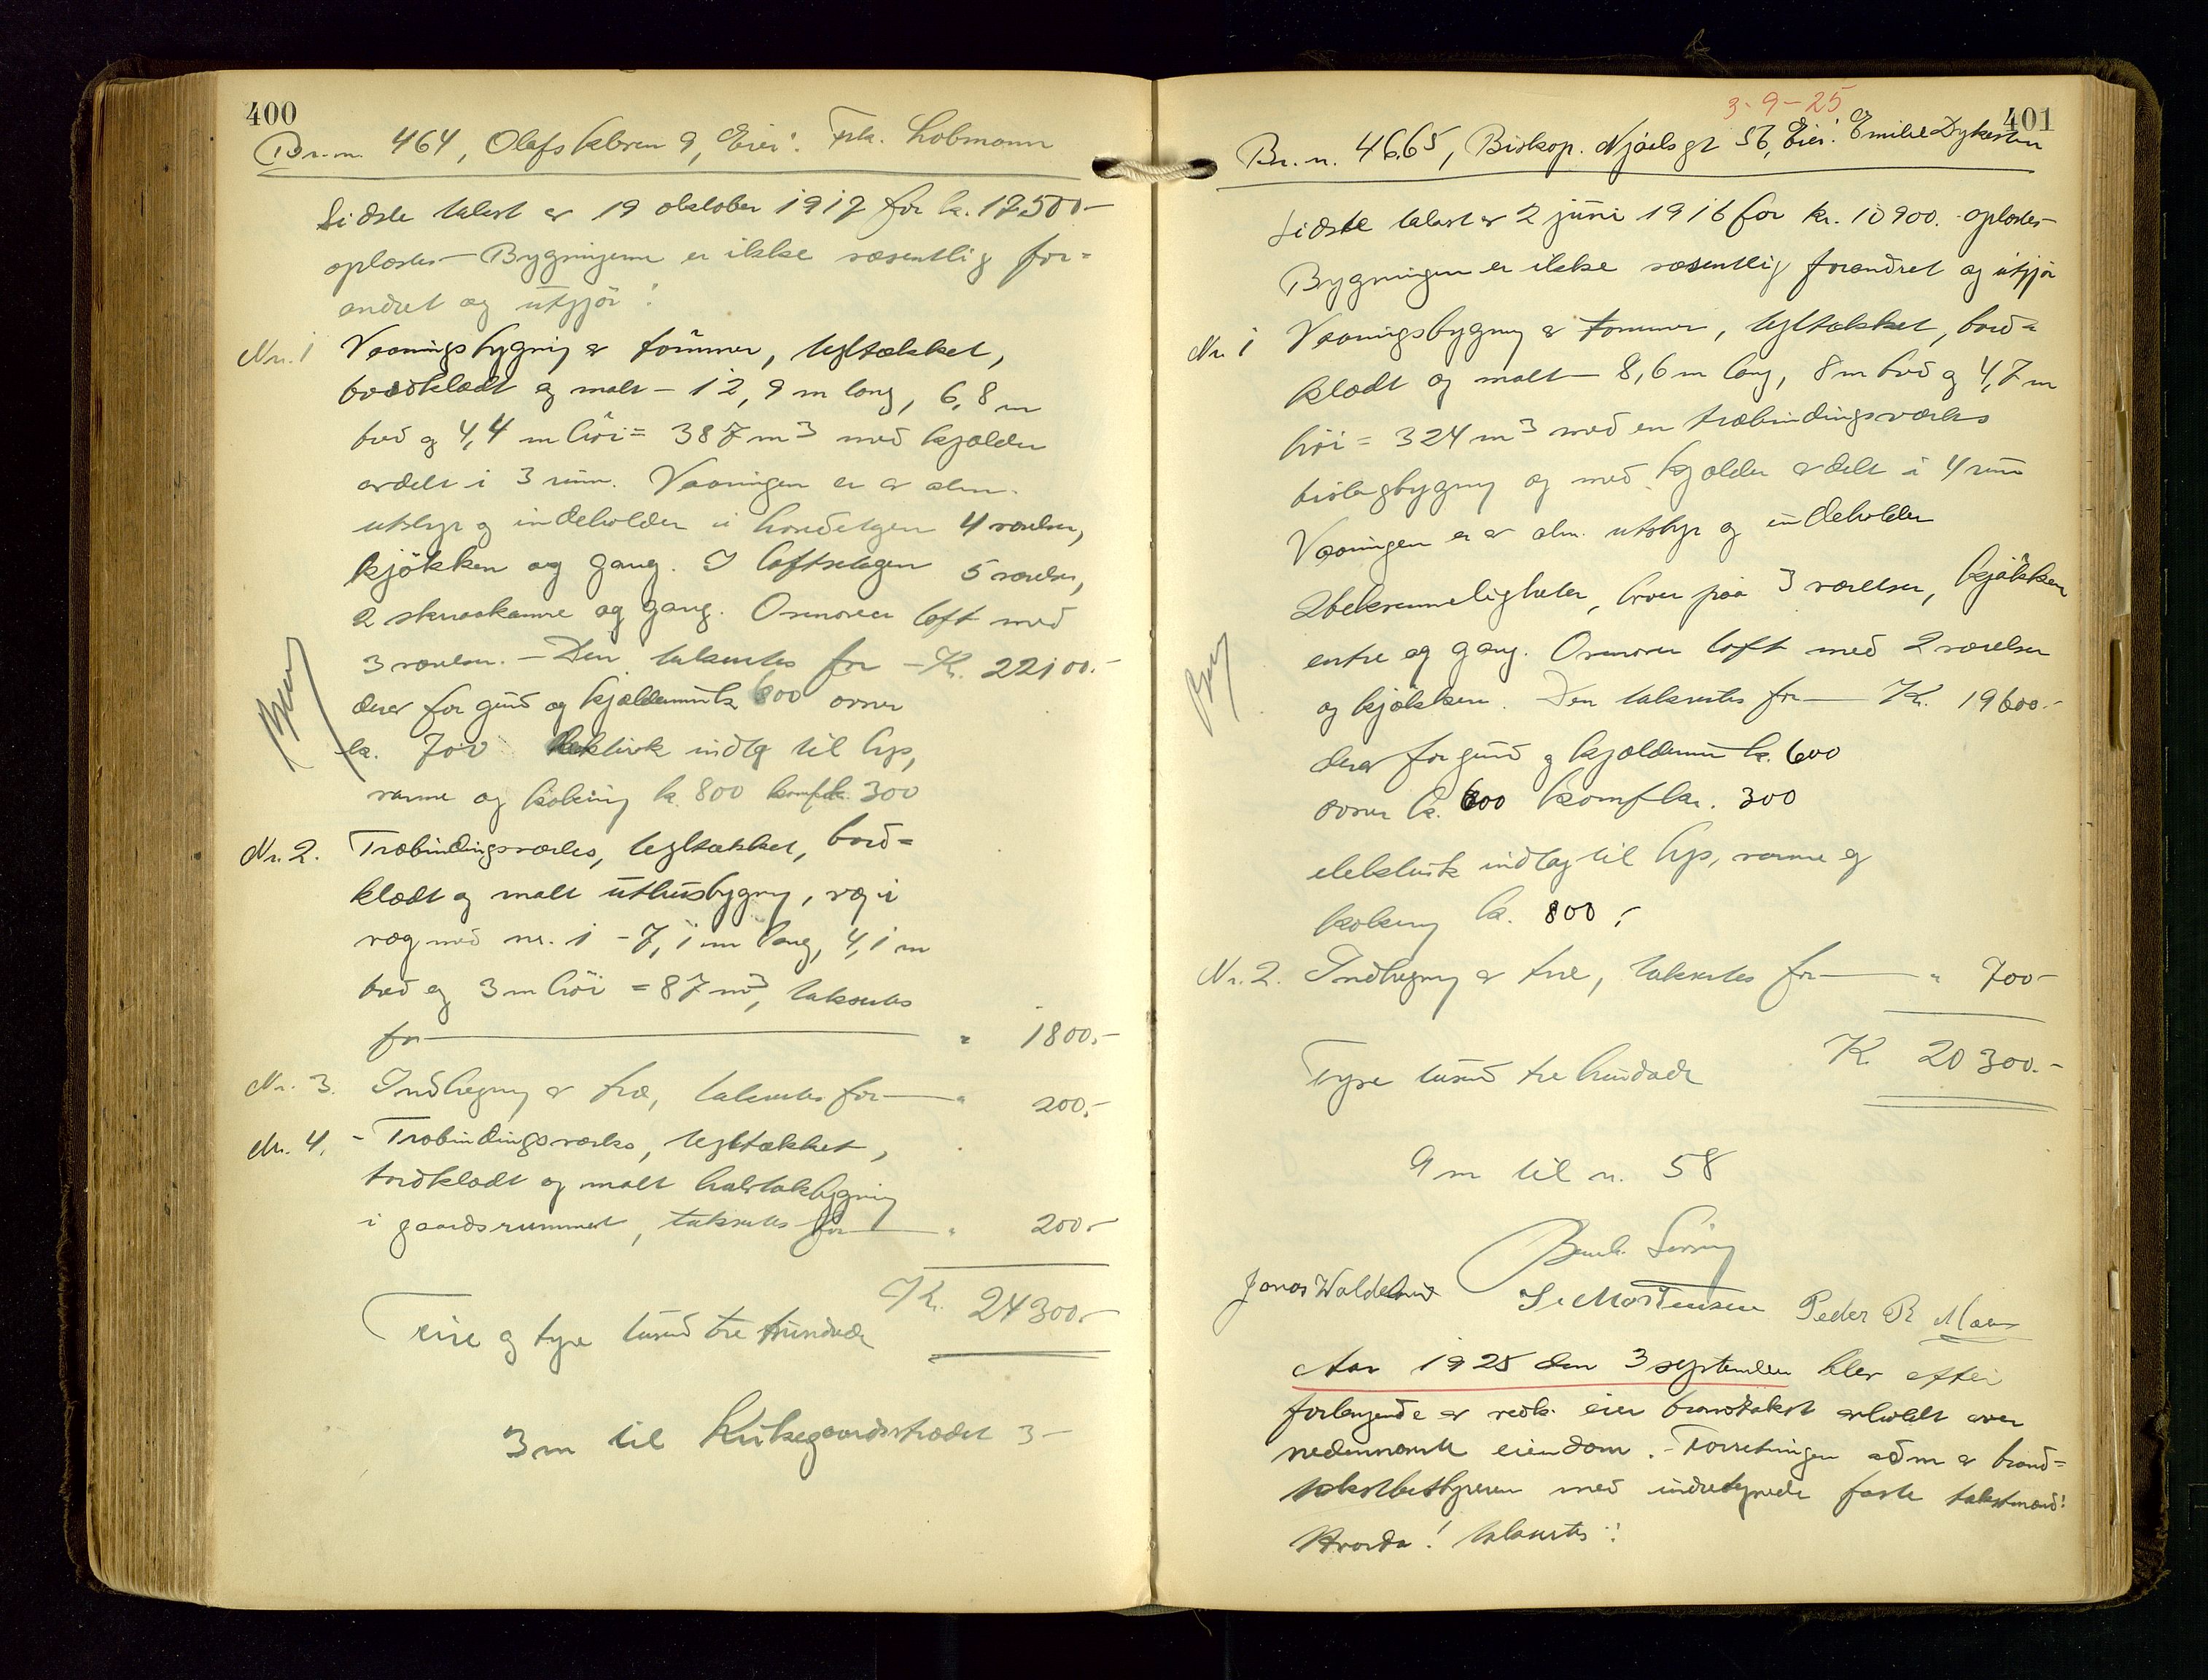 400
Br.n. 464, Olafskleven 9, Eier: Frk. Lobmann
Sidste takst av 19 oktober 1917 for kr. 17500-
oplæstes - Bygningerne er ikke væsentlig for=
andret og utgjør:
Nr. 1 Vaaningsbygning av tømmer, tegltækket,
bordklædt og malt - 12,9 m lang, 6,8 m
bred og 4,4 m høi = 387 m3 med kjælder
avdelt i 3 rum. Vaaningen er av alm.
utstyr og indeholder i hovedetagen 4 værelser,
kjøkken og gang. I loftsetagen 5 værelser,
2 skraakamre og gang. Ovenover loft med
3 værelser. - Den takseres for - Kr. 22100.-
derav for grund og kjældermur kr. 600 ovner
kr. 700 elektrisk indlæg til lys,
varme og kokning kr. 800 komf. kr. 300
Nr. 2. Træbindingsverks, tegltækket, bord=
klædt og malt uthusbygning, væg i
væg med nr. 1 - 7,1 m lang, 4,1 m
bred og 3 m høi = 87 m3, takseres
for " 1800.-
Nr. 3. Indhegning av træ, takseres for " 200.-
Nr. 4. - Træbindingsverks, tegltækket,
bordklædt og malt halvtakbygning
i gaardsrummet, takseres for " 200.-
Kr. 24300.-
Fire og tyve tusind tre hundrede
3 m til Kirkegaardsstrædet 3-
3-9-25
401
Br. n. 4665, Biskop Njaels gt 56, Eier: Emilie Dykesten
Sidste takst av 2 juni 1916 for kr. 10900. oplæstes-
Bygningen er ikke væsentlig forandret og utgjør
Nr. 1 Vaaningsbygning av tømmer, tegltækket, bord=
klædt og malt - 8,6 m lang, 8 m bred og 4,7 m
høi = 324 m3 med en træbindingsverks
bislagbygning og med kjælder avdelt i 4 rum
Vaaningen er av alm. utstyr og indeholder
2 bekvemmeligheter, hver paa 3 værelser, kjøkken
entre og gang. Ovenover loft med 2 værelser
og kjøkken. Den takseres for - Kr. 19600.-
derav for grund og kjældermur kr. 600
ovner kr. 600 komf. kr. 300
elektrisk indlæg til lys, varme og
kokning kr. 800.-
Nr. 2. Indhegning av træ, takseres for " 700-
Kr. 20300.-
Tyve tusind tre hundrede
9 m til n. 58
Jonas Waldeland Mortensen Peder R
Aar 1925 den 3 september blev efter
forlangende av vedk. eier brandtakst avholdt over
nedennævnte eiendom. - Forretningen adm. av brand=
takstbestyreren med undertegnede faste takstmænd:
Hvorda! takseres: